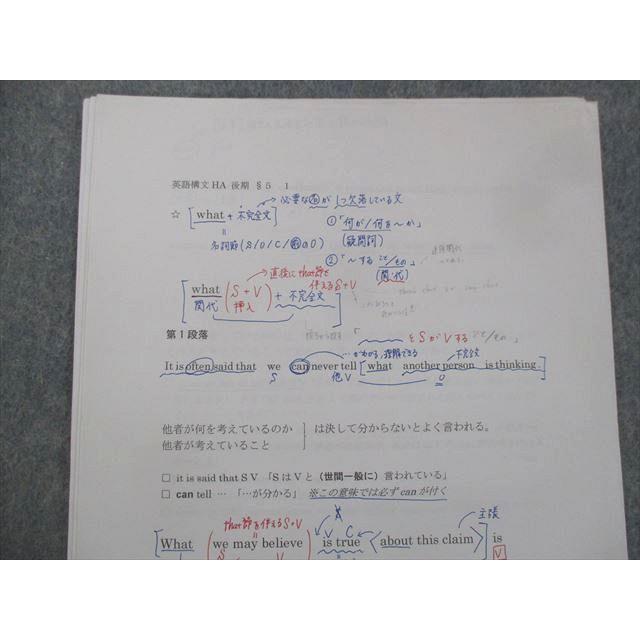 英語構文 HA 後期 §5 1
☆ [what + 不完全文] → 必要な名が1つ欠落している文
= 名詞節 (S/O/C/前のO)
①「何が/何を〜か」
(疑問詞)
②「〜する こと/もの」
(関・代)
→ 直後に that節を
伴えるS+V
[what (S + V) + 不完全文]
関代 挿入
「 をSがVする こと/もの」
第1段落
…がわかる、理解できる 不完全文
It is often said that we can never tell [what another person is thinking.]
S 他V O
他者が何を考えているのか
他者が考えていること
は決して分からないとよく言われる。
□ it is said that S V 「SはVと(世間一般に)言われている」
□ can tell … 「…が分かる」 ※この意味では必ず can が付く
that節を伴えるS+V
V C 主張
[What (we may believe) is true <about this claim>] is
S V V